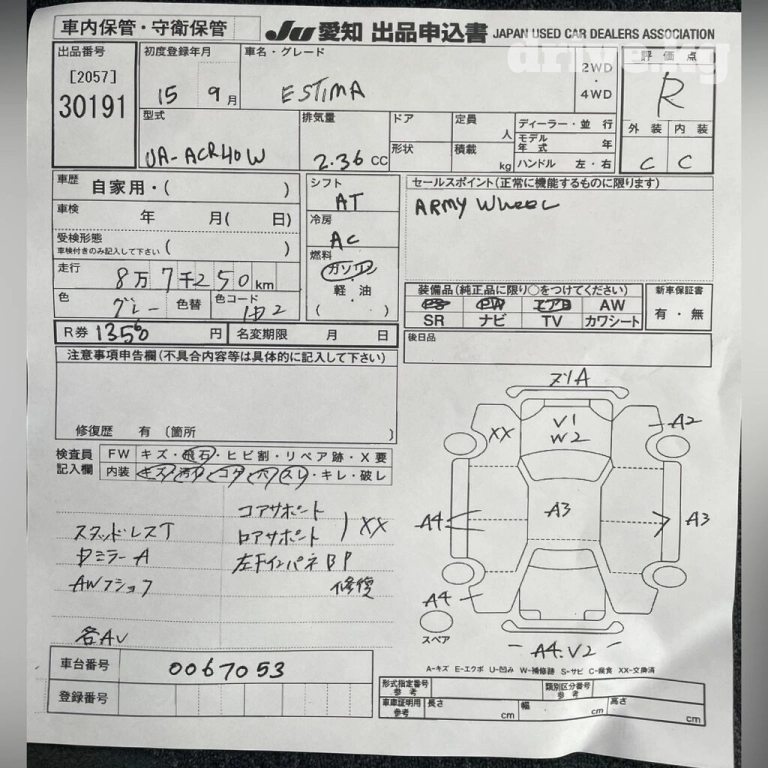 車内保管・守衛保管
JU 愛知 出品申込書 JAPAN USED CAR DEALERS ASSOCIATION
drive.kg
出品番号 初度登録年月 車名・グレード 評価点
[2057]
30191
15 9月 ESTIMA 2WD・4WD R
型式 排気量 ドア 定員 人 ディーラー・並行 外装 内装
モデル年式 年
UA-ACR40W 2.36 CC 形状 積載 kg ハンドル 左・右 C C
車歴 自家用・( ) シフト AT セールスポイント(正常に機能するものに限ります)
ARMY WHEEL
車検 年 月( 日) 冷房 AC
受検形態
車検付きのみ記入して下さい ( ) 燃料
ガソリン
軽・油
( )
走行 8万7千250km
色 グレー 色替 色コード 1B2
装備品(純正品に限り○をつけてください) 新車保証書
PS PW エアB AW 有・無
SR ナビ TV カワシート
R券 13560円 名変期限 月 日
後日品
注意事項申告欄(不具合内容等は具体的に記入して下さい)
修復歴 有 〔箇所 〕
検査員記入欄 FW キズ・飛石・ヒビ割・リペア跡・X要
内装 キズ・汚れ・コゲ・穴・スレ・キレ・破レ
スタッドレスT
ロミラーA
AWフショク
各AU
コアサポート
ロアサポート XX
左FインパネBP
修復
ズリA
XX V1 W2 A2
A4 A3 A3
A4
スペア
A4.V2
A-キズ E-エクボ U-凹み W-補修跡 S-サビ C-腐食 XX-交換済
車台番号 0067053
登録番号
形式指定番号 参考 類別区分番号 参考
車庫証明用 参考 長さ cm 幅 cm 高さ cm